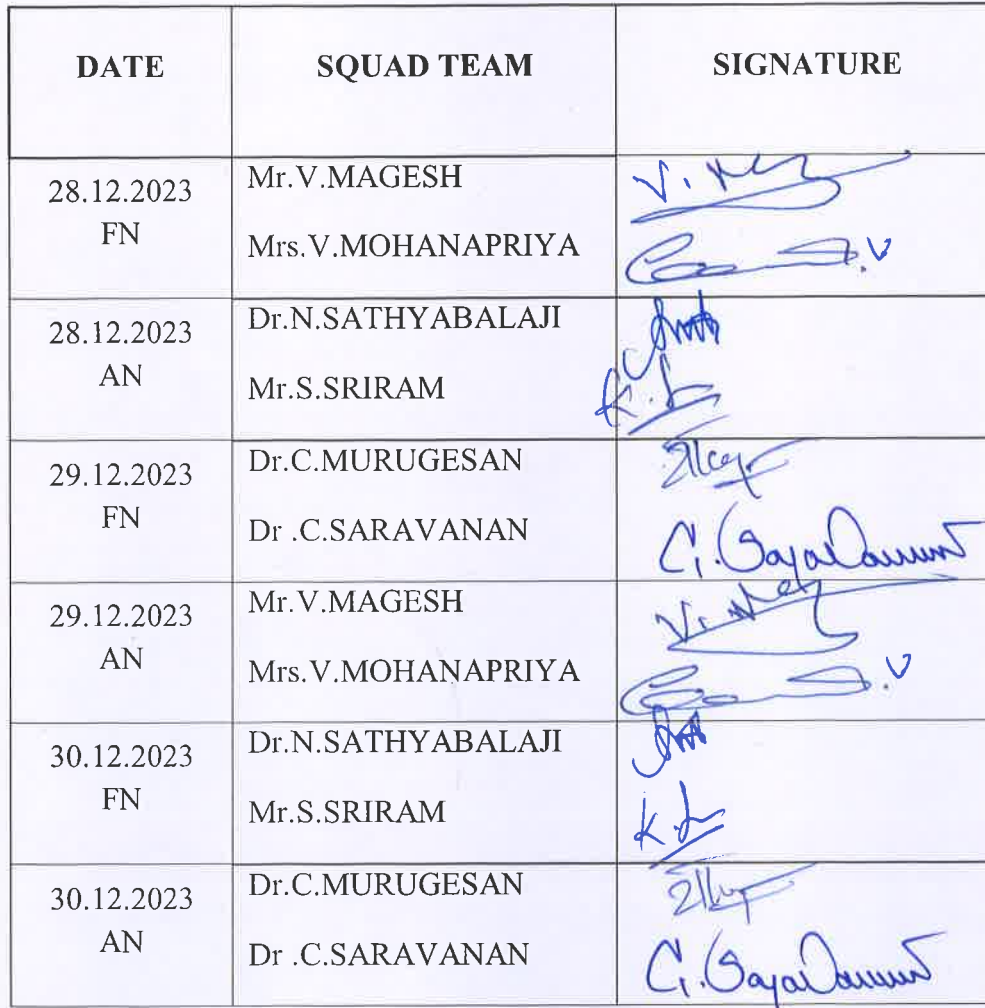 DATE SQUAD TEAM SIGNATURE
28.12.2023 Mr.V.MAGESH
FN Mrs.V.MOHANAPRIYA
28.12.2023 Dr.N.SATHYABALAJI
AN Mr.S.SRIRAM
29.12.2023 Dr.C.MURUGESAN
FN Dr .C.SARAVANAN
29.12.2023 Mr.V.MAGESH
AN Mrs.V.MOHANAPRIYA
30.12.2023 Dr.N.SATHYABALAJI
FN Mr.S.SRIRAM
30.12.2023 Dr.C.MURUGESAN
AN Dr .C.SARAVANAN